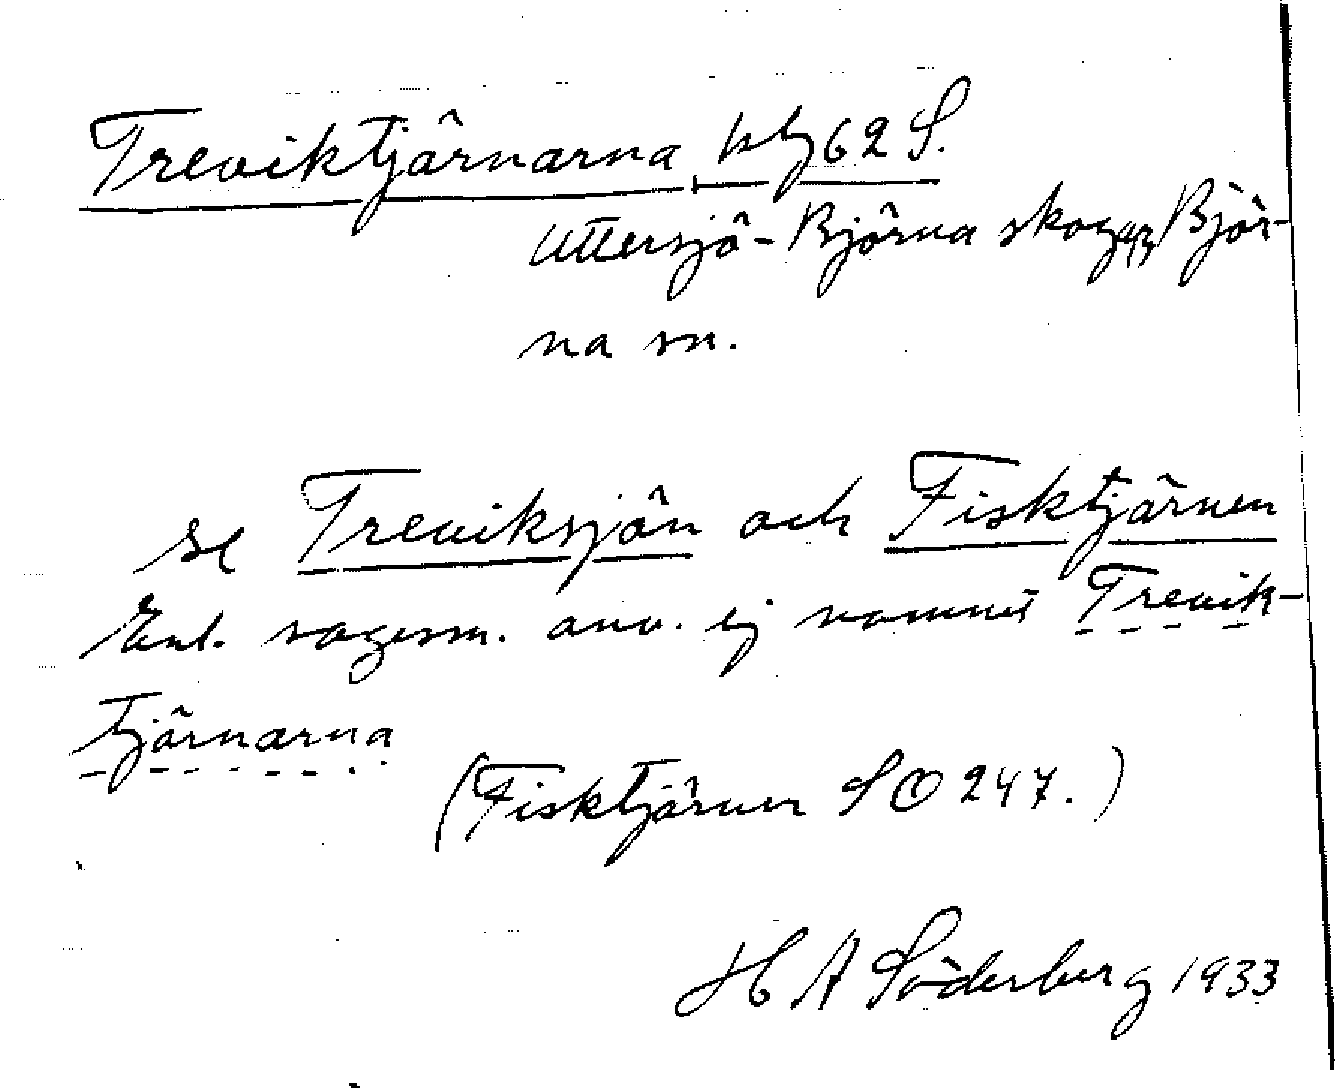 Treviktjärnarna, blg 62 S.
Uttersjö-Björna skog, Björ-
na sn.
se Treviksjön och Fisktjärnen
Enl. sagesm. anv. ej namnet Trevik-
tjärnarna
(Fisktjärnen SO 247.)
H A Söderberg 1933